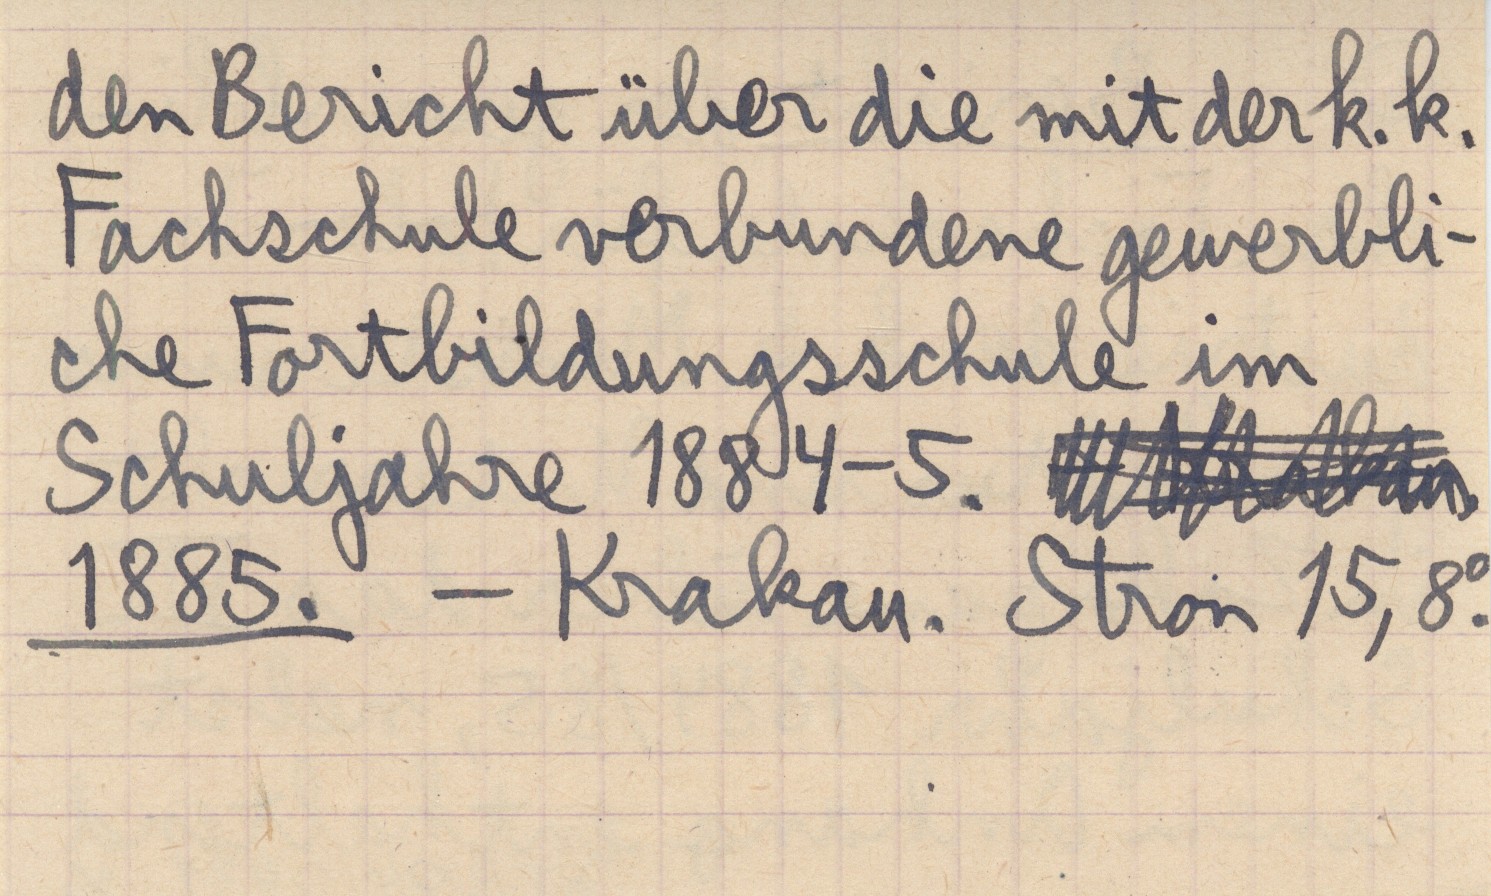 den Bericht über die mit der k. k.
Fachschule verbundene gewerbli-
che Fortbildungsschule im
Schuljahre 1884–5.
1885. – Krakau. Stron 15, 8º.